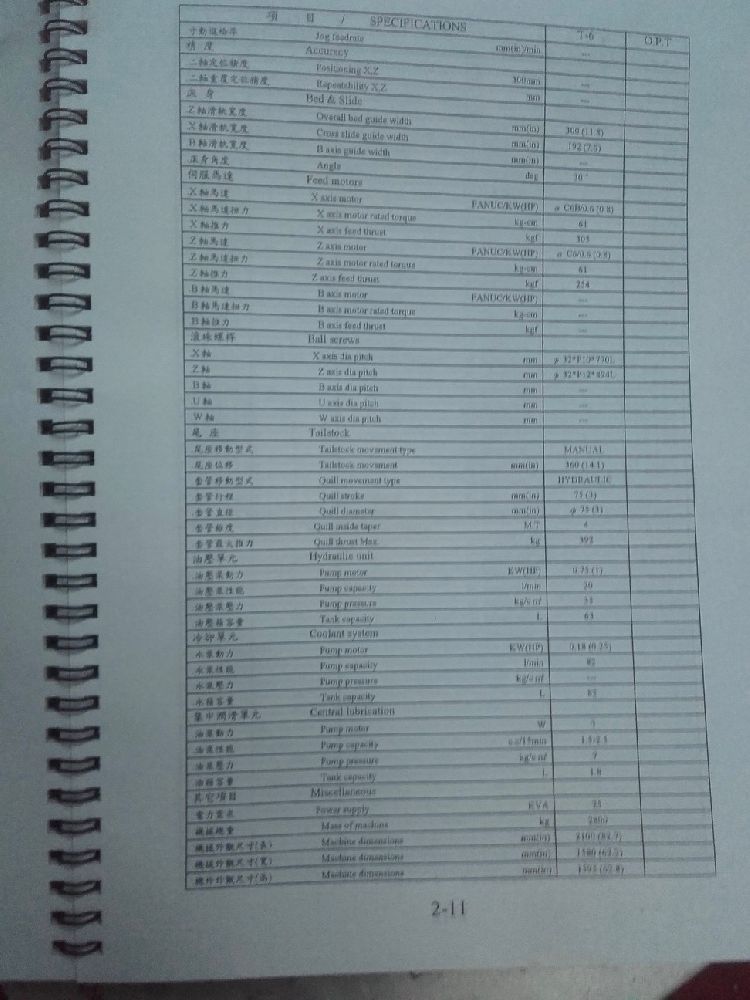 項 目 / SPECIFICATIONS T-6 O.P.T
寸動進給率 Jog feedrate mm(in)/min ---
精 度 Accuracy
二軸定位精度 Positioning X,Z ---
二軸重覆定位精度 Repeatability X,Z mm ---
床 身 Bed & Slide
Z軸滑軌寬度 Overall bed guide width mm(in) 300 (11.8)
X軸滑軌寬度 Cross slide guide width mm(in) 192 (7.5)
B軸滑軌寬度 B axis guide width mm(in) ---
床身角度 Angle deg
伺服馬達 Feed motors
X軸馬達 X axis motor FANUC/KW(HP)
X軸馬達扭力 X axis motor rated torque kg-cm 61
X軸推力 X axis feed thrust kgf
Z軸馬達 Z axis motor FANUC/KW(HP)
Z軸馬達扭力 Z axis motor rated torque kg-cm 61
Z軸推力 Z axis feed thrust kgf 254
B軸馬達 B axis motor FANUC/KW(HP) ---
B軸馬達扭力 B axis motor rated torque kg-cm ---
B軸推力 B axis feed thrust kgf ---
滾珠螺桿 Ball screws
X軸 X axis dia pitch mm
Z軸 Z axis dia pitch mm
B軸 B axis dia pitch mm ---
U軸 U axis dia pitch mm ---
W軸 W axis dia pitch mm ---
尾 座 Tailstock
尾座移動型式 Tailstock movement type MANUAL
尾座位移 Tailstock movement mm(in) 360 (14.1)
套管移動型式 Quill movement type HYDRAULIC
套管行程 Quill stroke mm(in) 75 (3)
套管直徑 Quill diameter mm(in) φ 75 (3)
套管錐度 Quill inside taper M.T 4
套管最大推力 Quill thrust Max. kg 392
油壓單元 Hydraulic unit
油壓泵動力 Pump motor KW(HP) 0.75 (1)
油壓泵性能 Pump capacity l/min
油壓泵壓力 Pump pressure kg/c㎡
油壓箱容量 Tank capacity L 63
冷卻單元 Coolant system
水泵動力 Pump motor KW(HP) 0.18 (0.25)
水泵性能 Pump capacity l/min
水泵壓力 Pump pressure kg/c㎡ ---
水箱容量 Tank capacity L
集中潤滑單元 Central lubrication
油泵動力 Pump motor W
油泵性能 Pump capacity c.c/15min
油泵壓力 Pump pressure kg/c㎡
油箱容量 Tank capacity L 1.8
其它項目 Miscellaneous
電力需求 Power supply KVA
機械總重 Mass of machine kg
機械外觀尺寸(長) Machine dimensions mm(in) 2100 (82.7)
機械外觀尺寸(寬) Machine dimensions mm(in)
機械外觀尺寸(高) Machine dimensions mm(in)
2-11